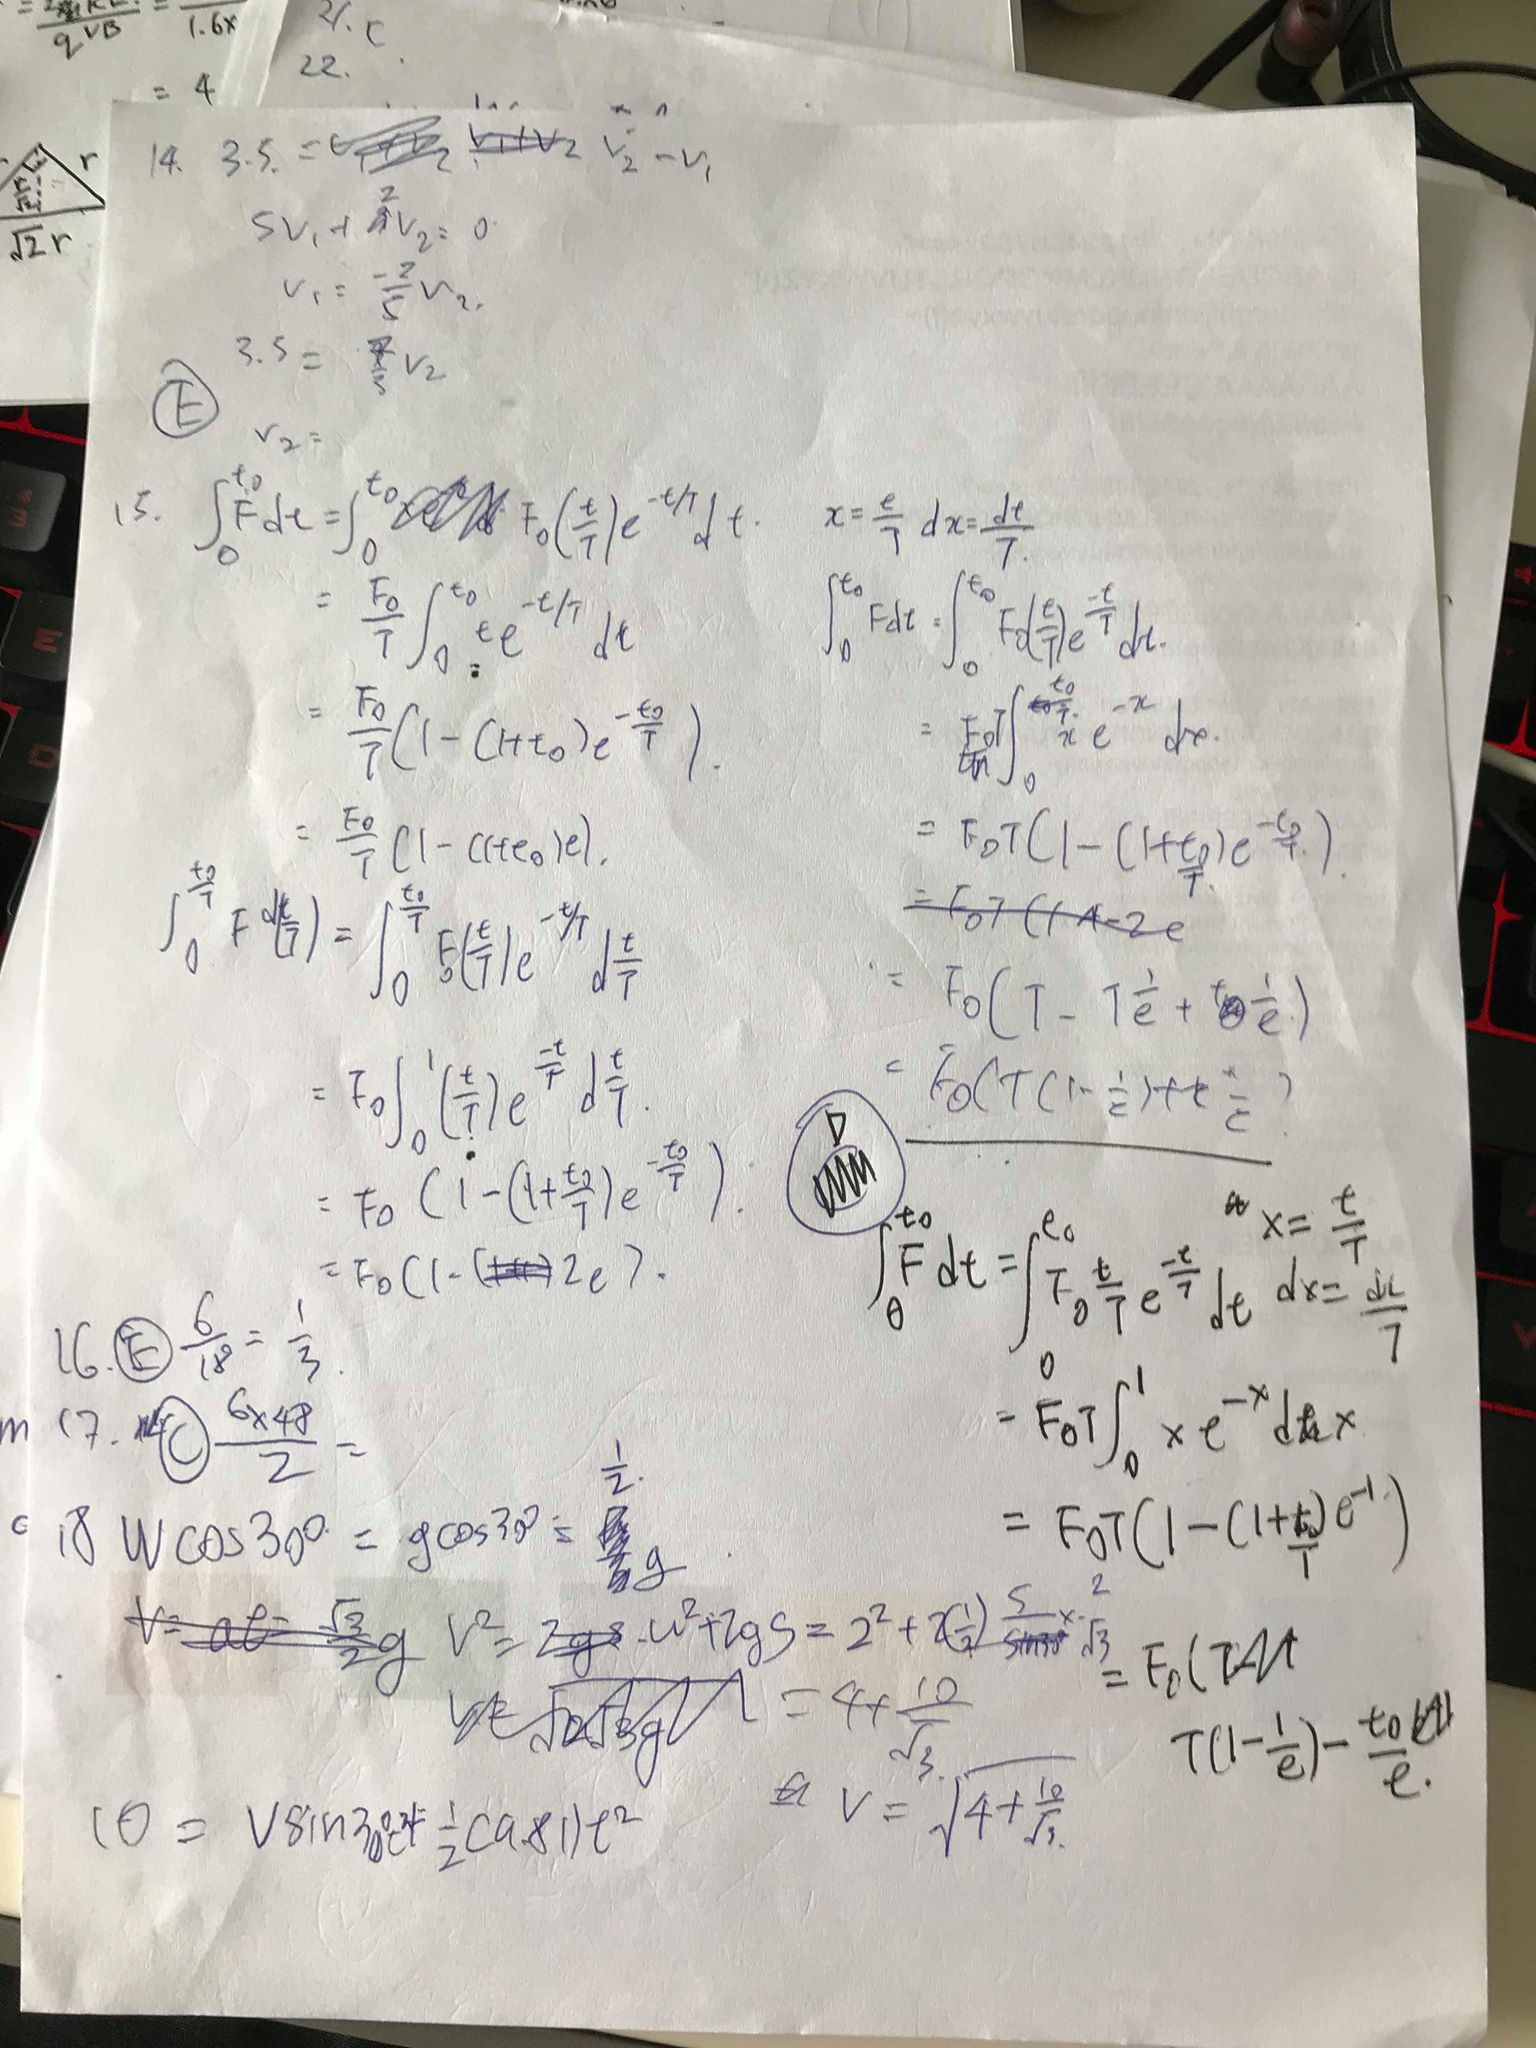 q VB
1.6x
= 4
21. C
22.
r
√2 r
14. 3.5 = V₂ - V₁
5V₁ + 2V₂ = 0
V₁ = -2/5 V₂.
3.5 = 7/5 V₂
E
V₂ =
15. ∫₀^t₀ F dt = ∫₀^t₀ F₀(t/T)e^(-t/T) dt.
= F₀/T ∫₀^t₀ t e^(-t/T) dt
= F₀/T (1-(1+t₀)e^(-t₀/T)).
= F₀/T (1-(1+t₀)e).
∫₀^(t₀/T) F d(t/T) = ∫₀^(t₀/T) F₀(t/T)e^(-t/T) d t/T
= F₀ ∫₀^1 (t/T) e^(-t/T) d t/T.
= F₀ (1-(1+t₀/T)e^(-t₀/T)).
= F₀ (1- 2e).
x = t/T dx = dt/T.
∫₀^t₀ F dt = ∫₀^t₀ F₀(t/T)e^(-t/T) dt.
= F₀T ∫₀^(t₀/T) x e^(-x) dx.
= F₀T(1-(1+t₀/T)e^(-t₀/T)).
= F₀T(1-2e
= F₀(T - T 1/e + t₀ 1/e)
= F₀(T(1-1/e)+t 1/e)
D
∫₀^t₀ F dt = ∫₀^t₀ F₀ t/T e^(-t/T) dt
x = t/T
dx = dt/T
= F₀T ∫₀^1 x e^(-x) dx
= F₀T(1-(1+t₀/T)e^(-1))
= F₀(T
T(1-1/e) - t₀/e.
16. E 6/18 = 1/3.
17. C 6x48/2 =
18 W cos30° = g cos30° = 1/2 g
V = at = √3/2 g
V² = u²+2gs = 2² + 2(1/2) 5/sin30 x 2/√3
= 4 + 10/√3.
V = √(4 + 10/√3)
10 = V sin30°t + 1/2 (9.81)t²